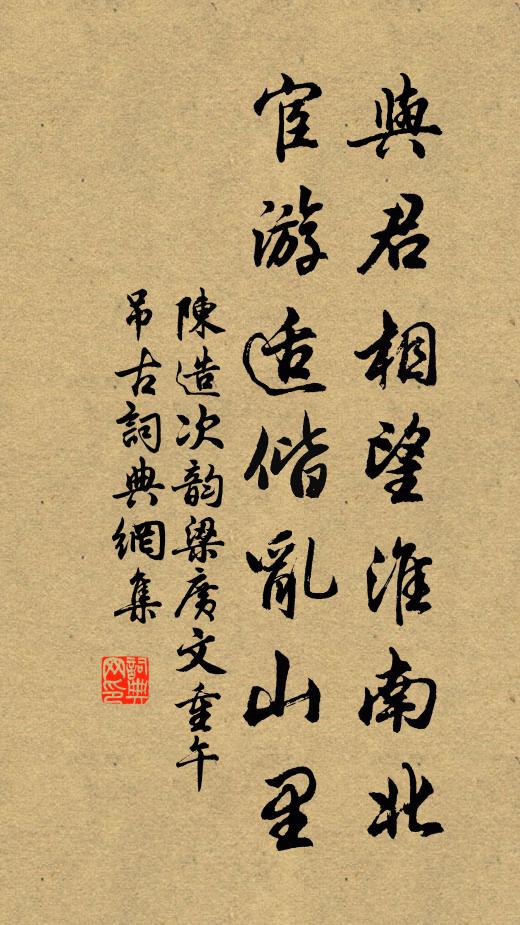 與君相望淮南北
宦游适偕亂山里
陳造次韵梁廣文重午
吊古詞典網集
詞典網印